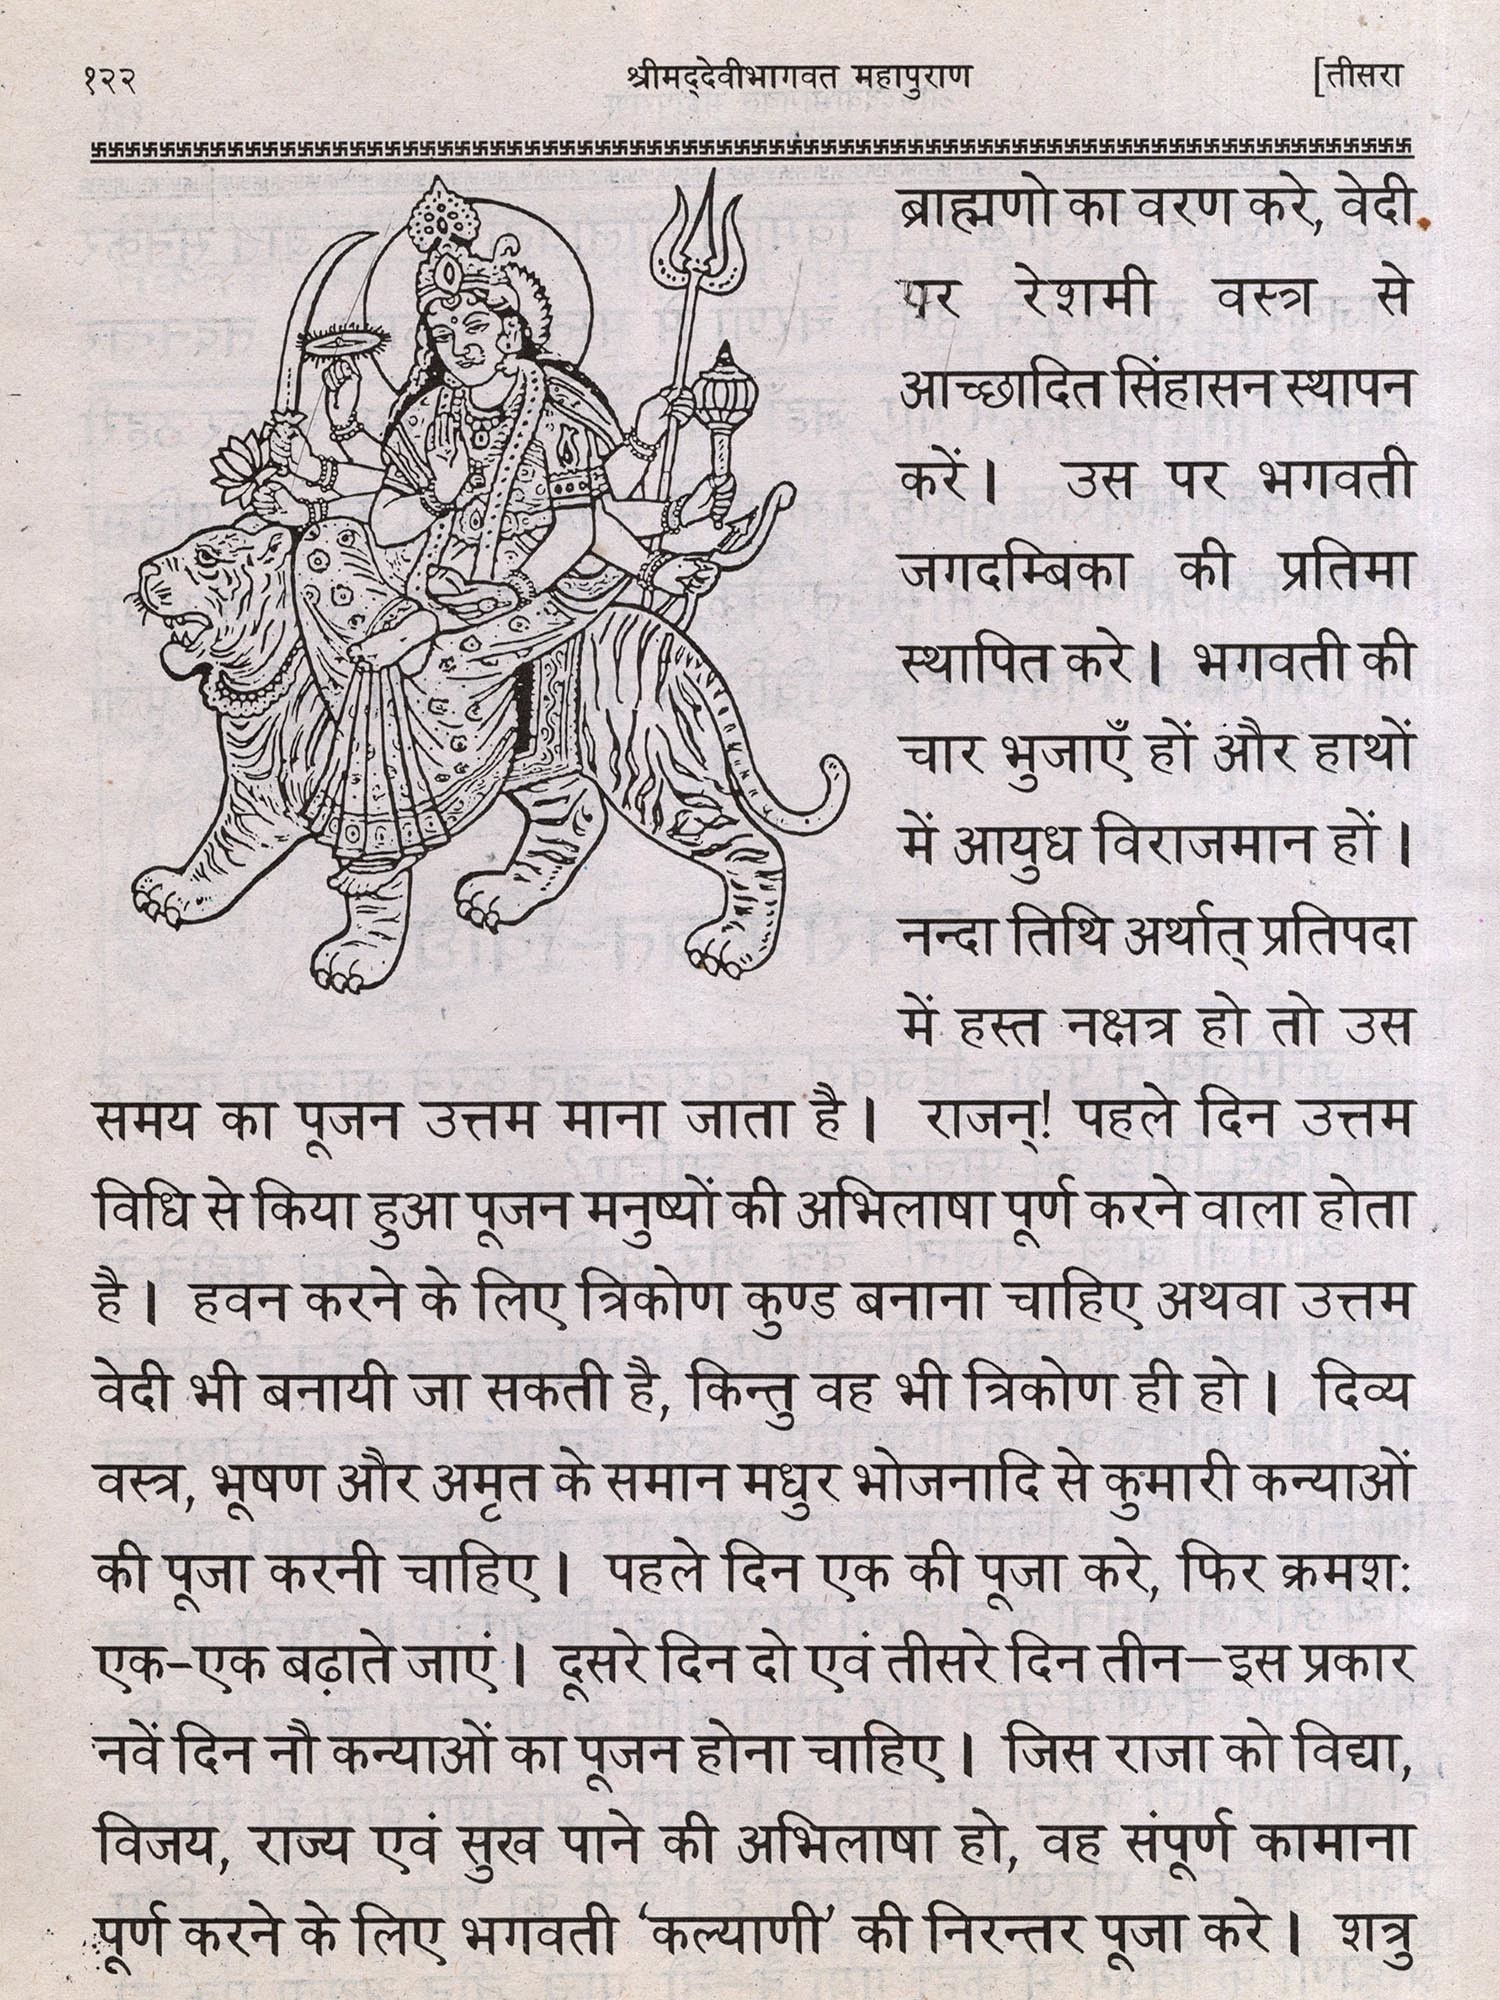 १२२ श्रीमद्देवीभागवत महापुराण [तीसरा
ब्राह्मणो का वरण करे, वेदी
पर रेशमी वस्त्र से
आच्छादित सिंहासन स्थापन
करें। उस पर भगवती
जगदम्बिका की प्रतिमा
स्थापित करे। भगवती की
चार भुजाएँ हों और हाथों
में आयुध विराजमान हों।
नन्दा तिथि अर्थात् प्रतिपदा
में हस्त नक्षत्र हो तो उस
समय का पूजन उत्तम माना जाता है। राजन्! पहले दिन उत्तम
विधि से किया हुआ पूजन मनुष्यों की अभिलाषा पूर्ण करने वाला होता
है। हवन करने के लिए त्रिकोण कुण्ड बनाना चाहिए अथवा उत्तम
वेदी भी बनायी जा सकती है, किन्तु वह भी त्रिकोण ही हो। दिव्य
वस्त्र, भूषण और अमृत के समान मधुर भोजनादि से कुमारी कन्याओं
की पूजा करनी चाहिए। पहले दिन एक की पूजा करे, फिर क्रमशः
एक-एक बढ़ाते जाएं। दूसरे दिन दो एवं तीसरे दिन तीन—इस प्रकार
नवें दिन नौ कन्याओं का पूजन होना चाहिए। जिस राजा को विद्या,
विजय, राज्य एवं सुख पाने की अभिलाषा हो, वह संपूर्ण कामाना
पूर्ण करने के लिए भगवती ‘कल्याणी’ की निरन्तर पूजा करे। शत्रु